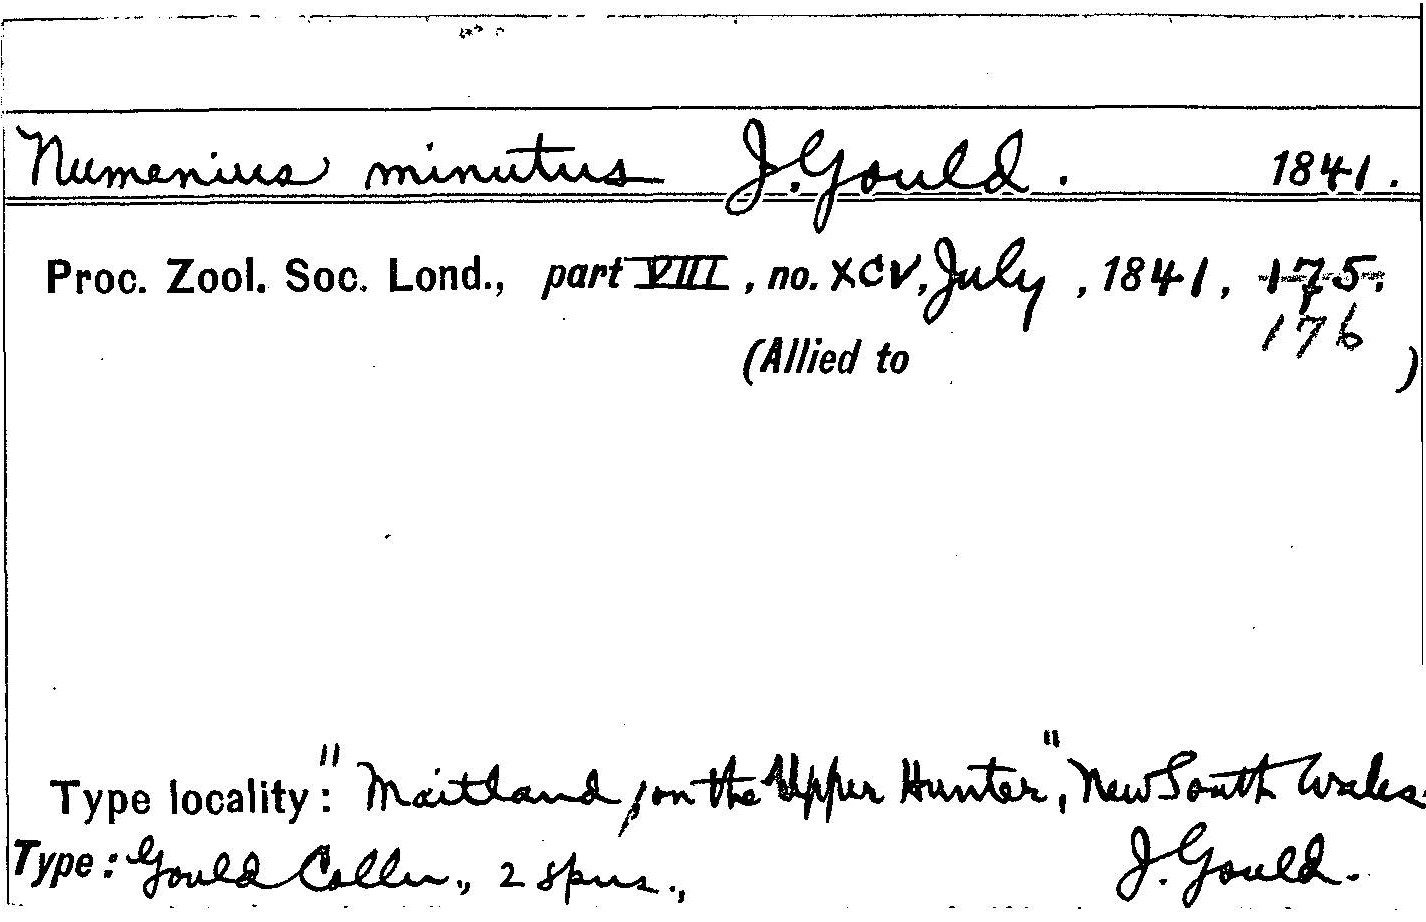 Numenius minutus J. Gould. 1841.
Proc. Zool. Soc. Lond., part VIII, no. XCV, July, 1841, 175.
176
(Allied to )
Type locality: "Maitland, on the Upper Hunter", New South Wales.
Type: Gould Colln., 2 spms., J. Gould.